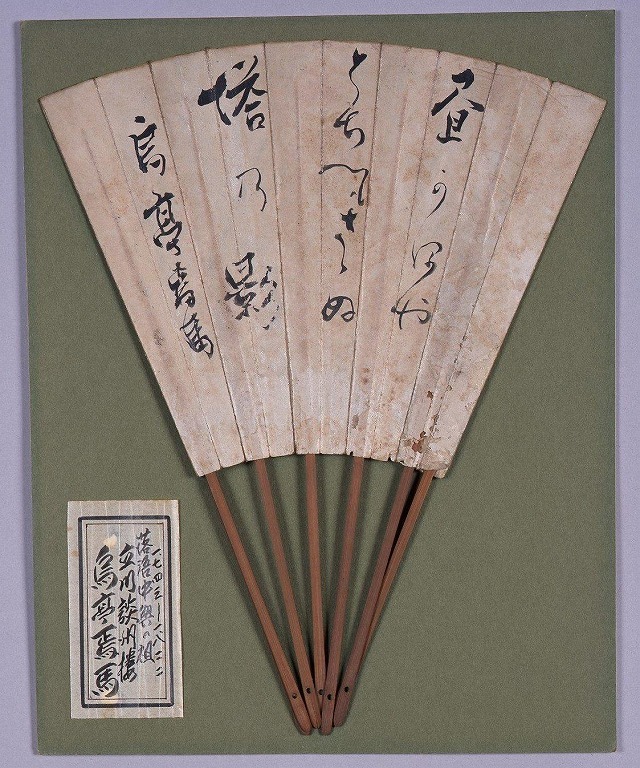 昼かほや
とちへもさゝぬ
塔乃影
烏亭焉馬
一七四三―一八二二
落語中興の祖
立川談洲楼
烏亭焉馬